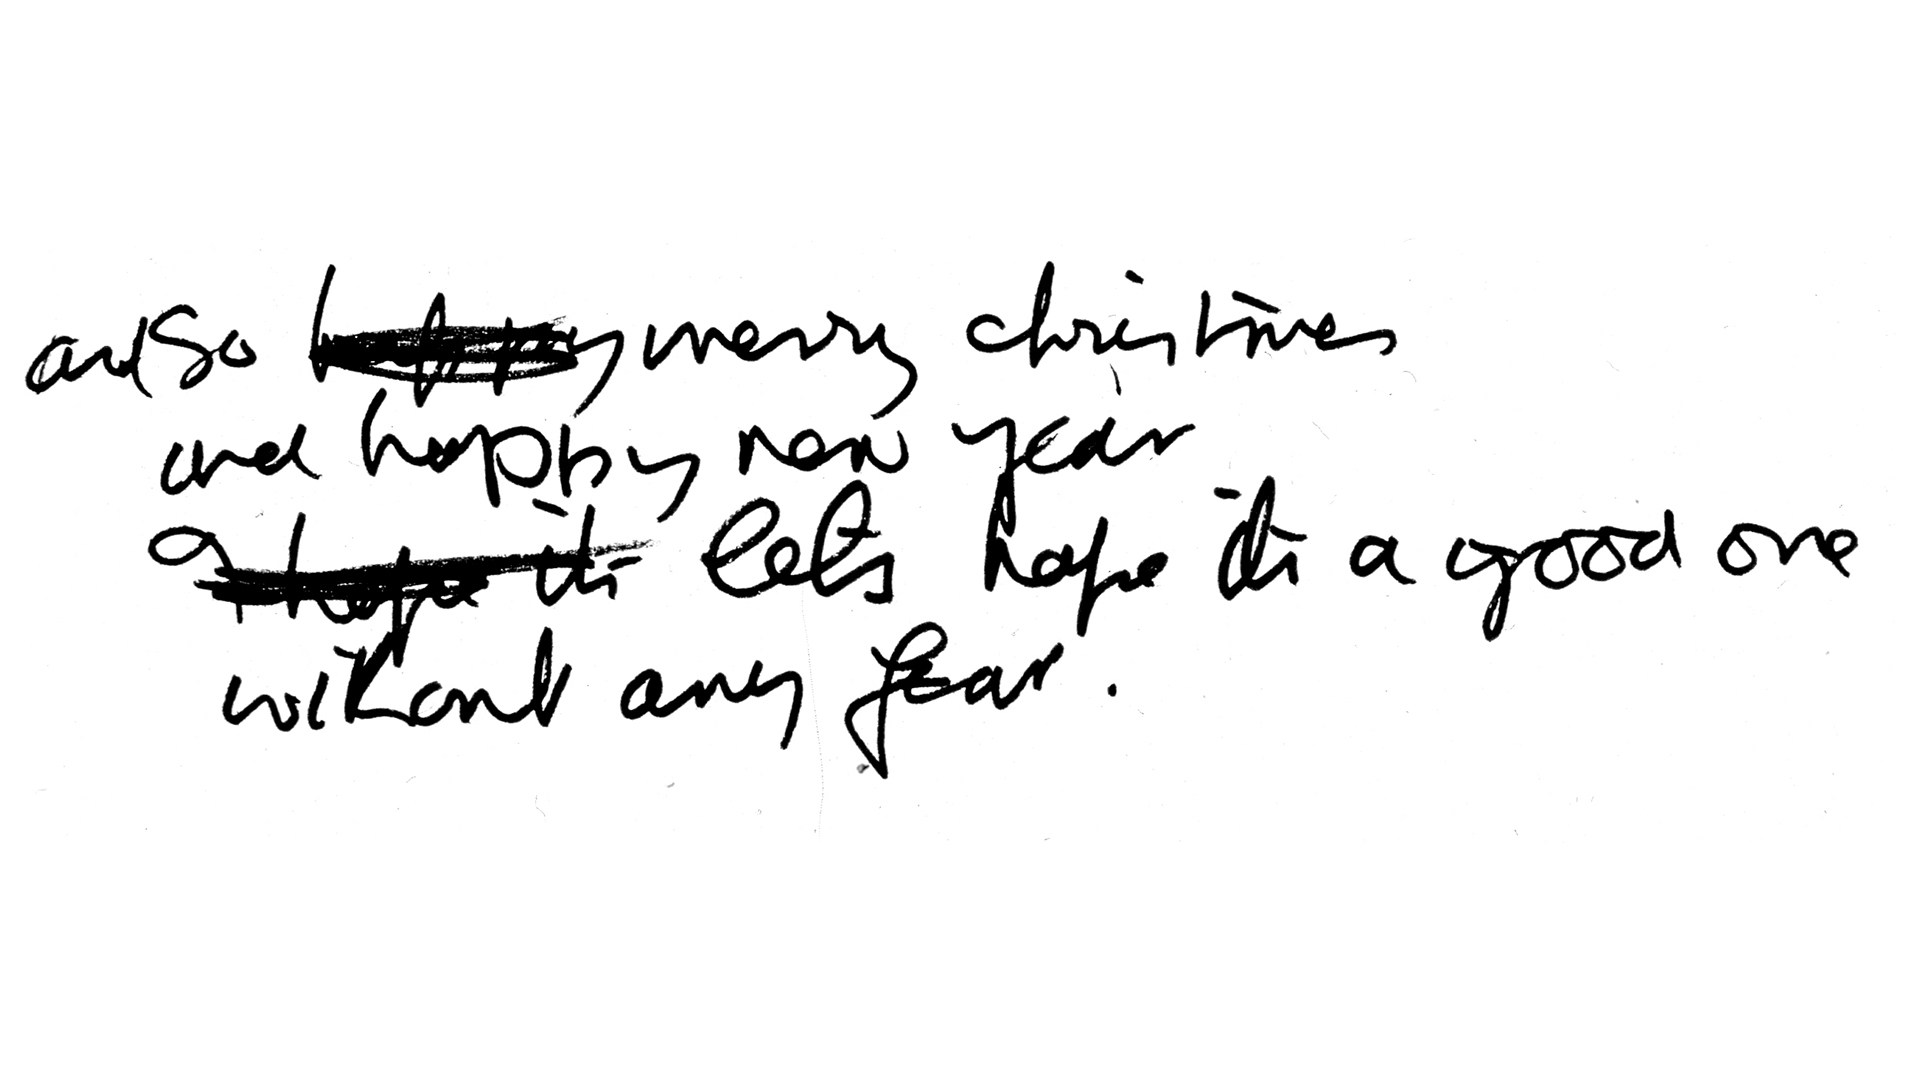 and so ~~happy~~ merry christmas
and happy new year
~~I hope its~~ lets hope its a good one
without any fear.